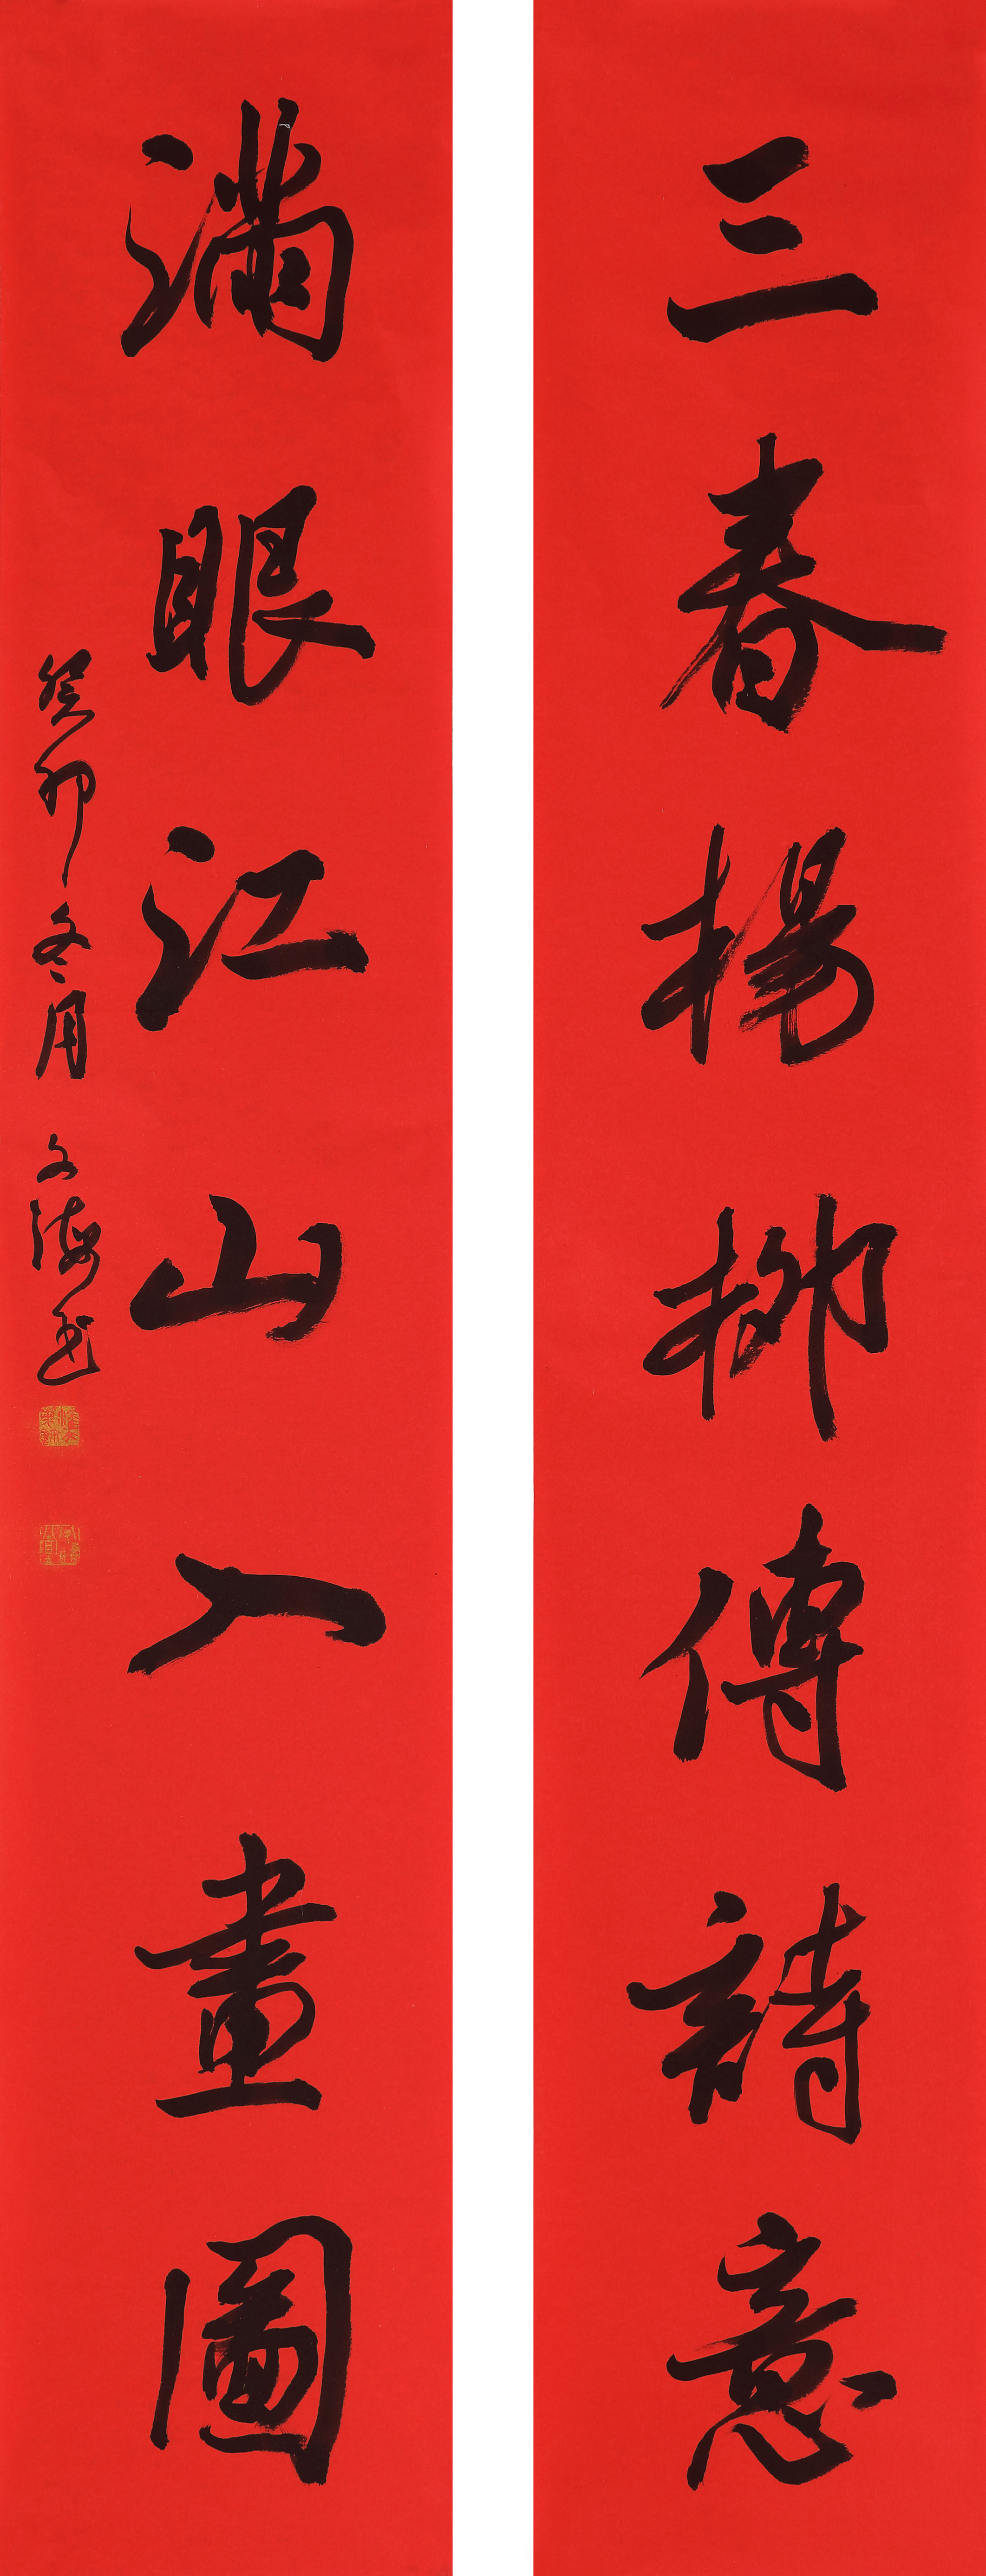 三春楊柳傳詩意
滿眼江山入畫圖
癸卯冬月 文海書